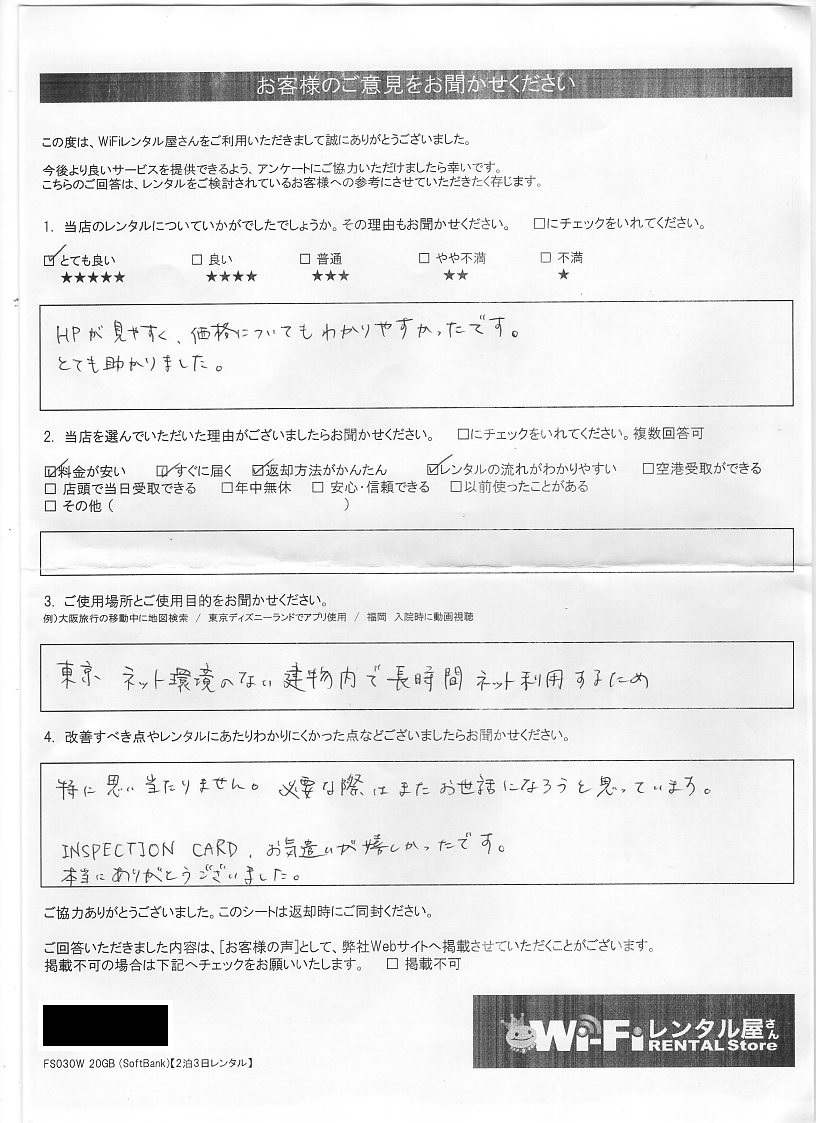 お客様のご意見をお聞かせください
この度は、WiFiレンタル屋さんをご利用いただきまして誠にありがとうございました。
今後より良いサービスを提供できるよう、アンケートにご協力いただけましたら幸いです。
こちらのご回答は、レンタルをご検討されているお客様への参考にさせていただきたく存じます。
1. 当店のレンタルについていかがでしたでしょうか。その理由もお聞かせください。 □にチェックをいれてください。
☑ とても良い □ 良い □ 普通 □ やや不満 □ 不満
★★★★★ ★★★★ ★★★ ★★ ★
HPが見やすく、価格についてもわかりやすかったです。
とても助かりました。
2. 当店を選んでいただいた理由がございましたらお聞かせください。 □にチェックをいれてください。複数回答可
☑料金が安い ☑すぐに届く ☑返却方法がかんたん ☑レンタルの流れがわかりやすい □空港受取ができる
□ 店頭で当日受取できる □年中無休 □ 安心・信頼できる □以前使ったことがある
□ その他（ ）
3. ご使用場所とご使用目的をお聞かせください。
例）大阪旅行の移動中に地図検索 / 東京ディズニーランドでアプリ使用 / 福岡 入院時に動画視聴
東京 ネット環境のない建物内で長時間ネット利用するため
4. 改善すべき点やレンタルにあたりわかりにくかった点などございましたらお聞かせください。
特に思い当たりません。必要な際はまたお世話になろうと思っています。
INSPECTION CARD、お気遣いが嬉しかったです。
本当にありがとうございました。
ご協力ありがとうございました。このシートは返却時にご同封ください。
ご回答いただきました内容は、[お客様の声]として、弊社Webサイトへ掲載させていただくことがございます。
掲載不可の場合は下記へチェックをお願いいたします。 □ 掲載不可
Wi-Fiレンタル屋さん
RENTAL Store
FS030W 20GB (SoftBank)【2泊3日レンタル】